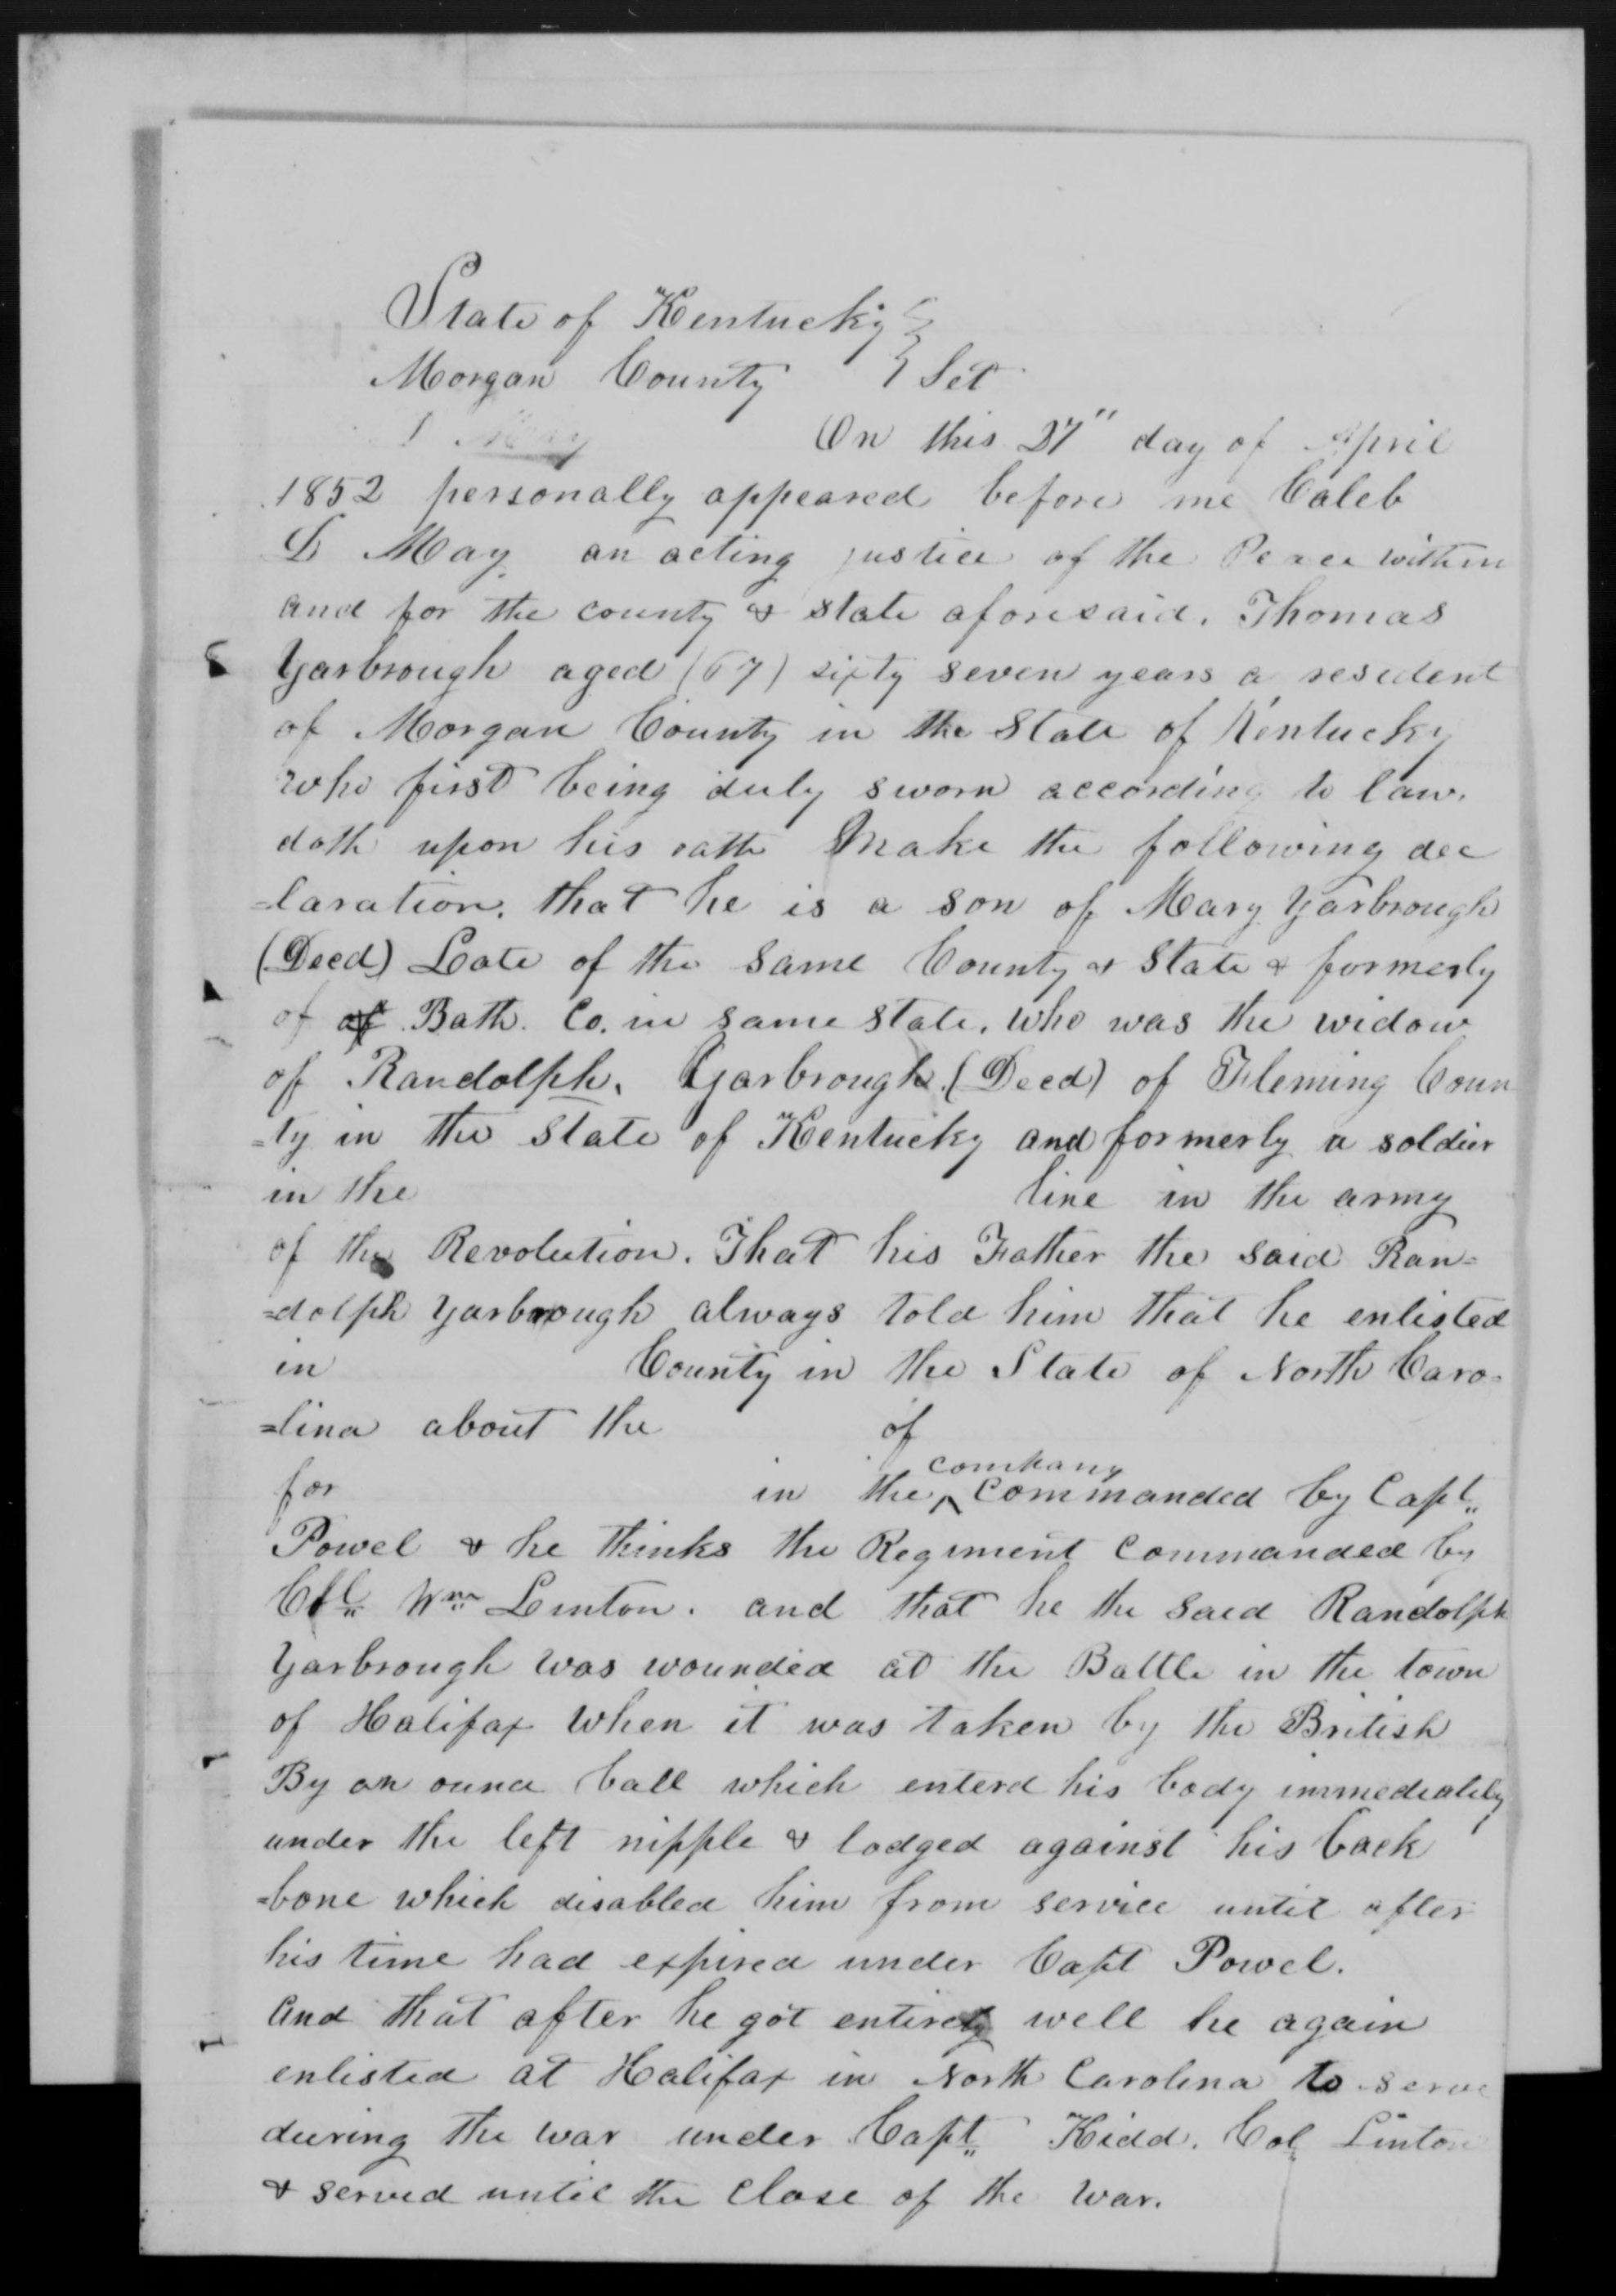 State of Kentucky }
Morgan County } Sct
On this 27" day of April
1852 personally appeared before me Caleb
D May an acting justice of the Peace within
and for the county & state aforesaid. Thomas
Yarbrough aged (67) sixty seven years a resident
of Morgan County in the State of Kentucky
who first being duly sworn according to law.
doth upon his oath Make the following dec
=laration. that he is a son of Mary Yarbrough
(Decd) Late of the same County & State & formerly
of of Bath. Co. in same state. who was the widow
of Randolph. Yarbrough (Decd) of Fleming Coun
=ty in the State of Kentucky and formerly a soldier
in the line in the army
of the Revolution. That his Father the said Ran=
=dolph Yarbrough always told him that he enlisted
in County in the State of North Caro=
=lina about the of
for in the company commanded by Capt
Powel & he thinks the Regiment commanded by
Col Wm Linton. and that he the said Randolph
Yarbrough was wounded at the Battle in the town
of Halifax when it was taken by the British
By an ounce ball which enterd his body immediately
under the left nipple & lodged against his back
=bone which disabled him from service until after
his time had expired under Capt Powel.
And that after he got entirely well he again
enlisted at Halifax in North Carolina to serve
during the war under Capt Kidd. Col Linton
& served until the close of the war.